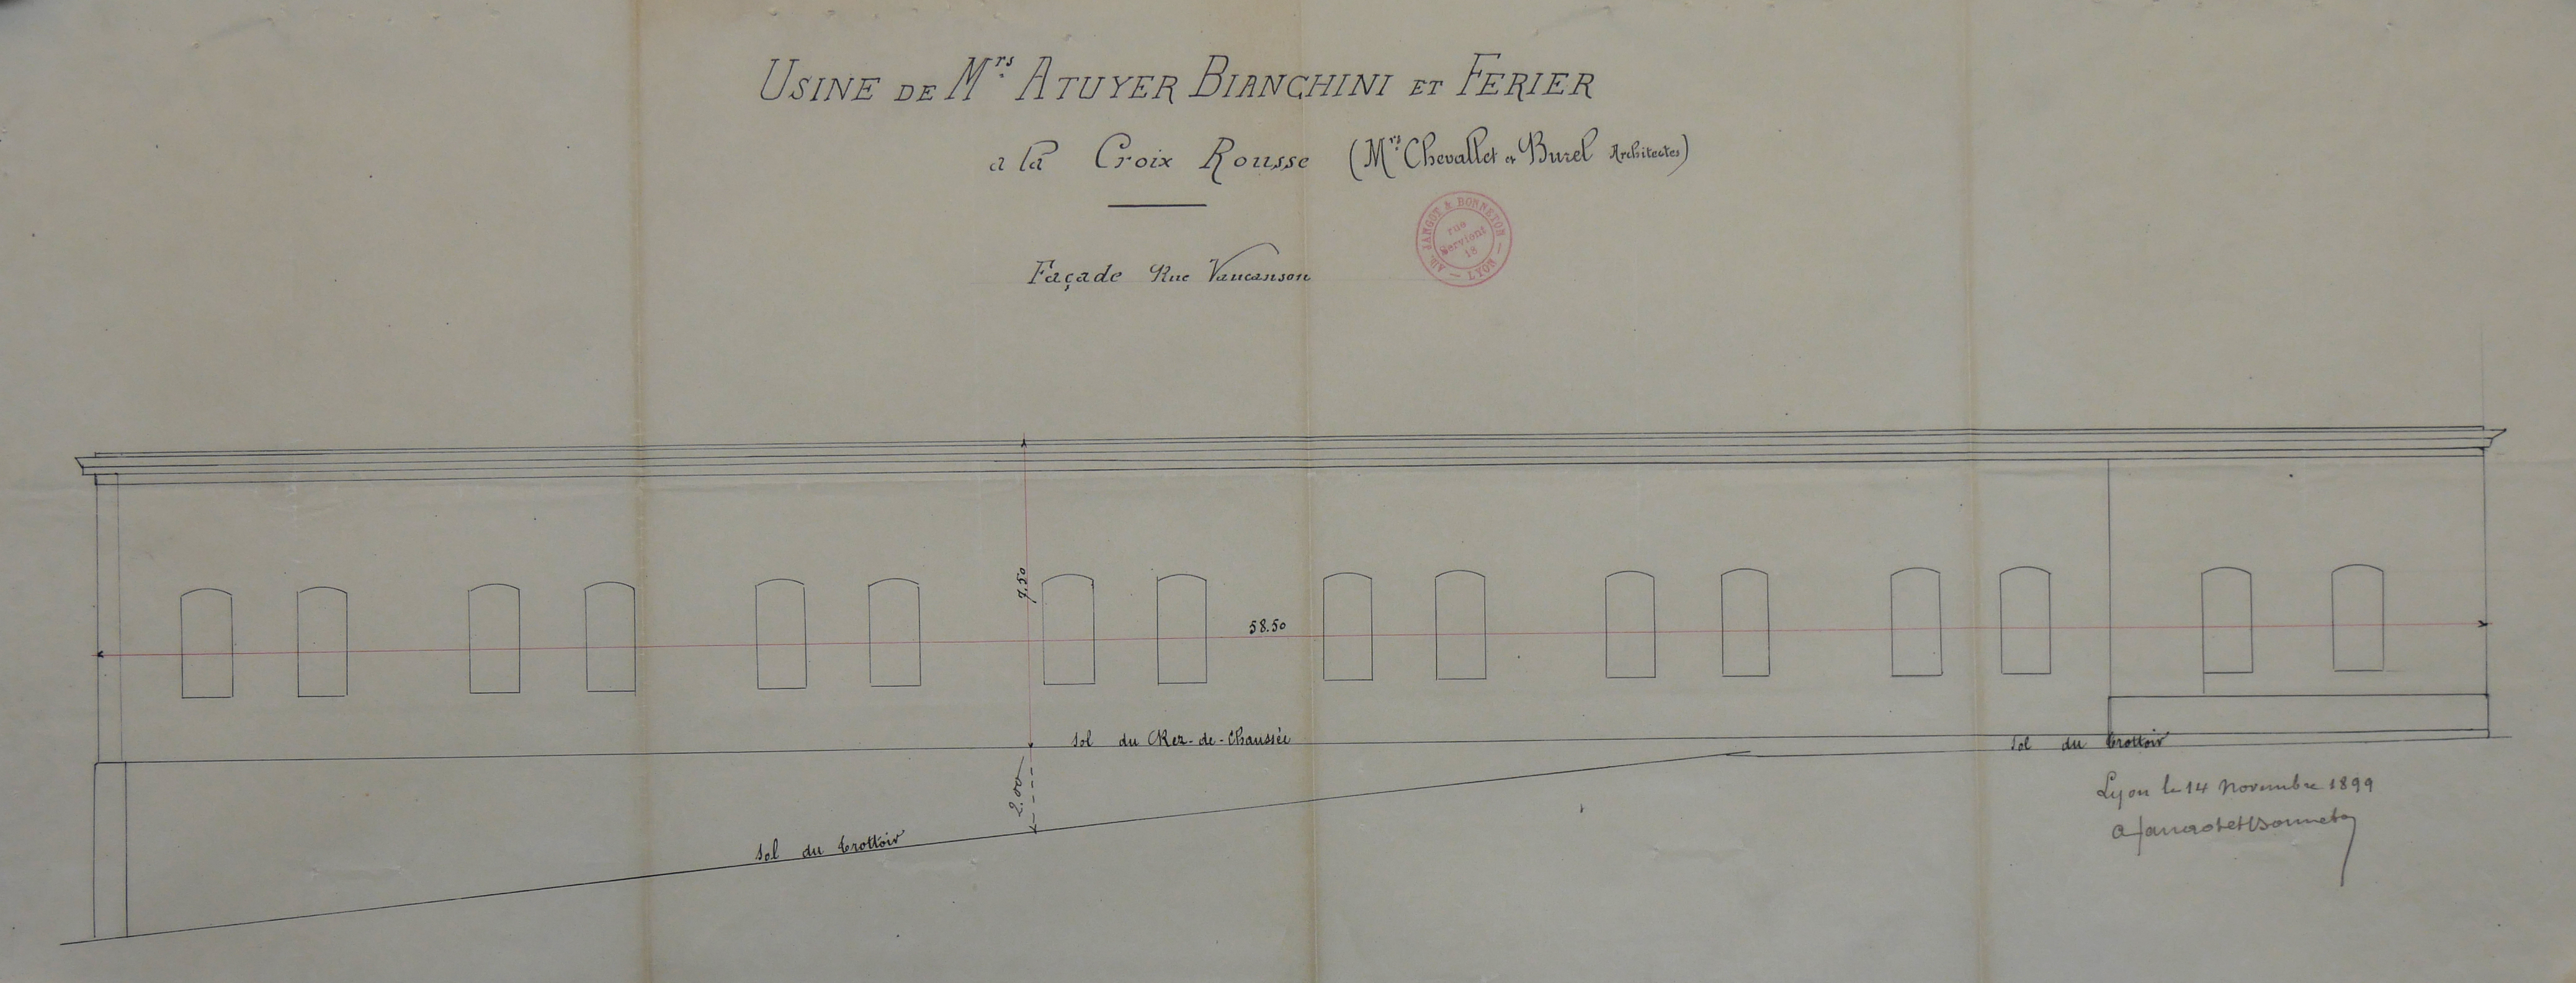 USINE DE Mrs ATUYER BIANCHINI ET FERIER
a la Croix Rousse (Mrs Chevallet et Burel Architectes)
AD. JANGOT & BONNETON — LYON —
rue
Servient
18
Façade Rue Vaucanson
7.50
58.50
Sol du Rez-de-Chaussée
Sol du trottoir
2.00
Sol du trottoir
Lyon le 14 Novembre 1899